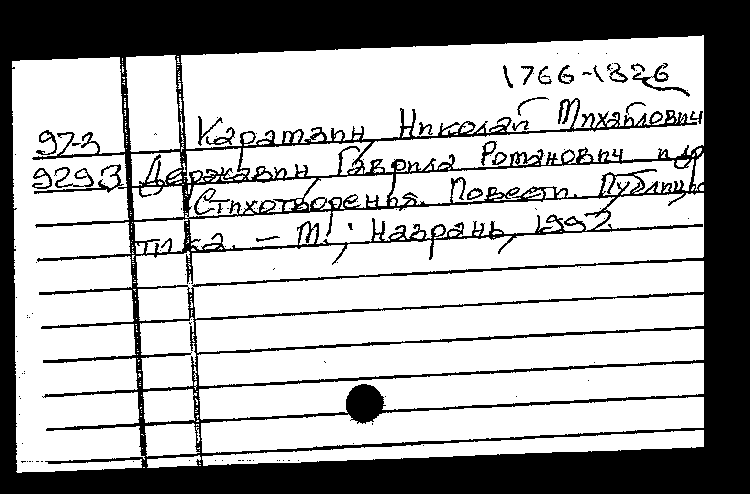 1766-1826
97-3 Карамзин, Николай Михайлович
9293 Державин, Гаврила Романович и др
Стихотворения. Повести. Публицис
тика. - М.; Назрань, 1997.